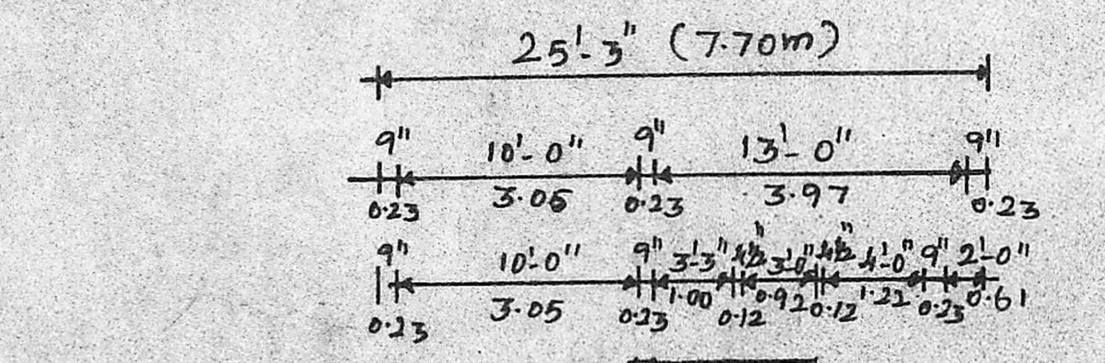 25'-3" (7.70m)
9" 10'-0" 9" 13'-0" 9"
0.23 3.05 0.23 3.97 0.23
9" 10'-0" 9" 3'-3" 4½" 3'-0" 4½" 4'-0" 9" 2'-0"
0.23 3.05 0.23 1.00 0.12 0.92 0.12 1.22 0.23 0.61